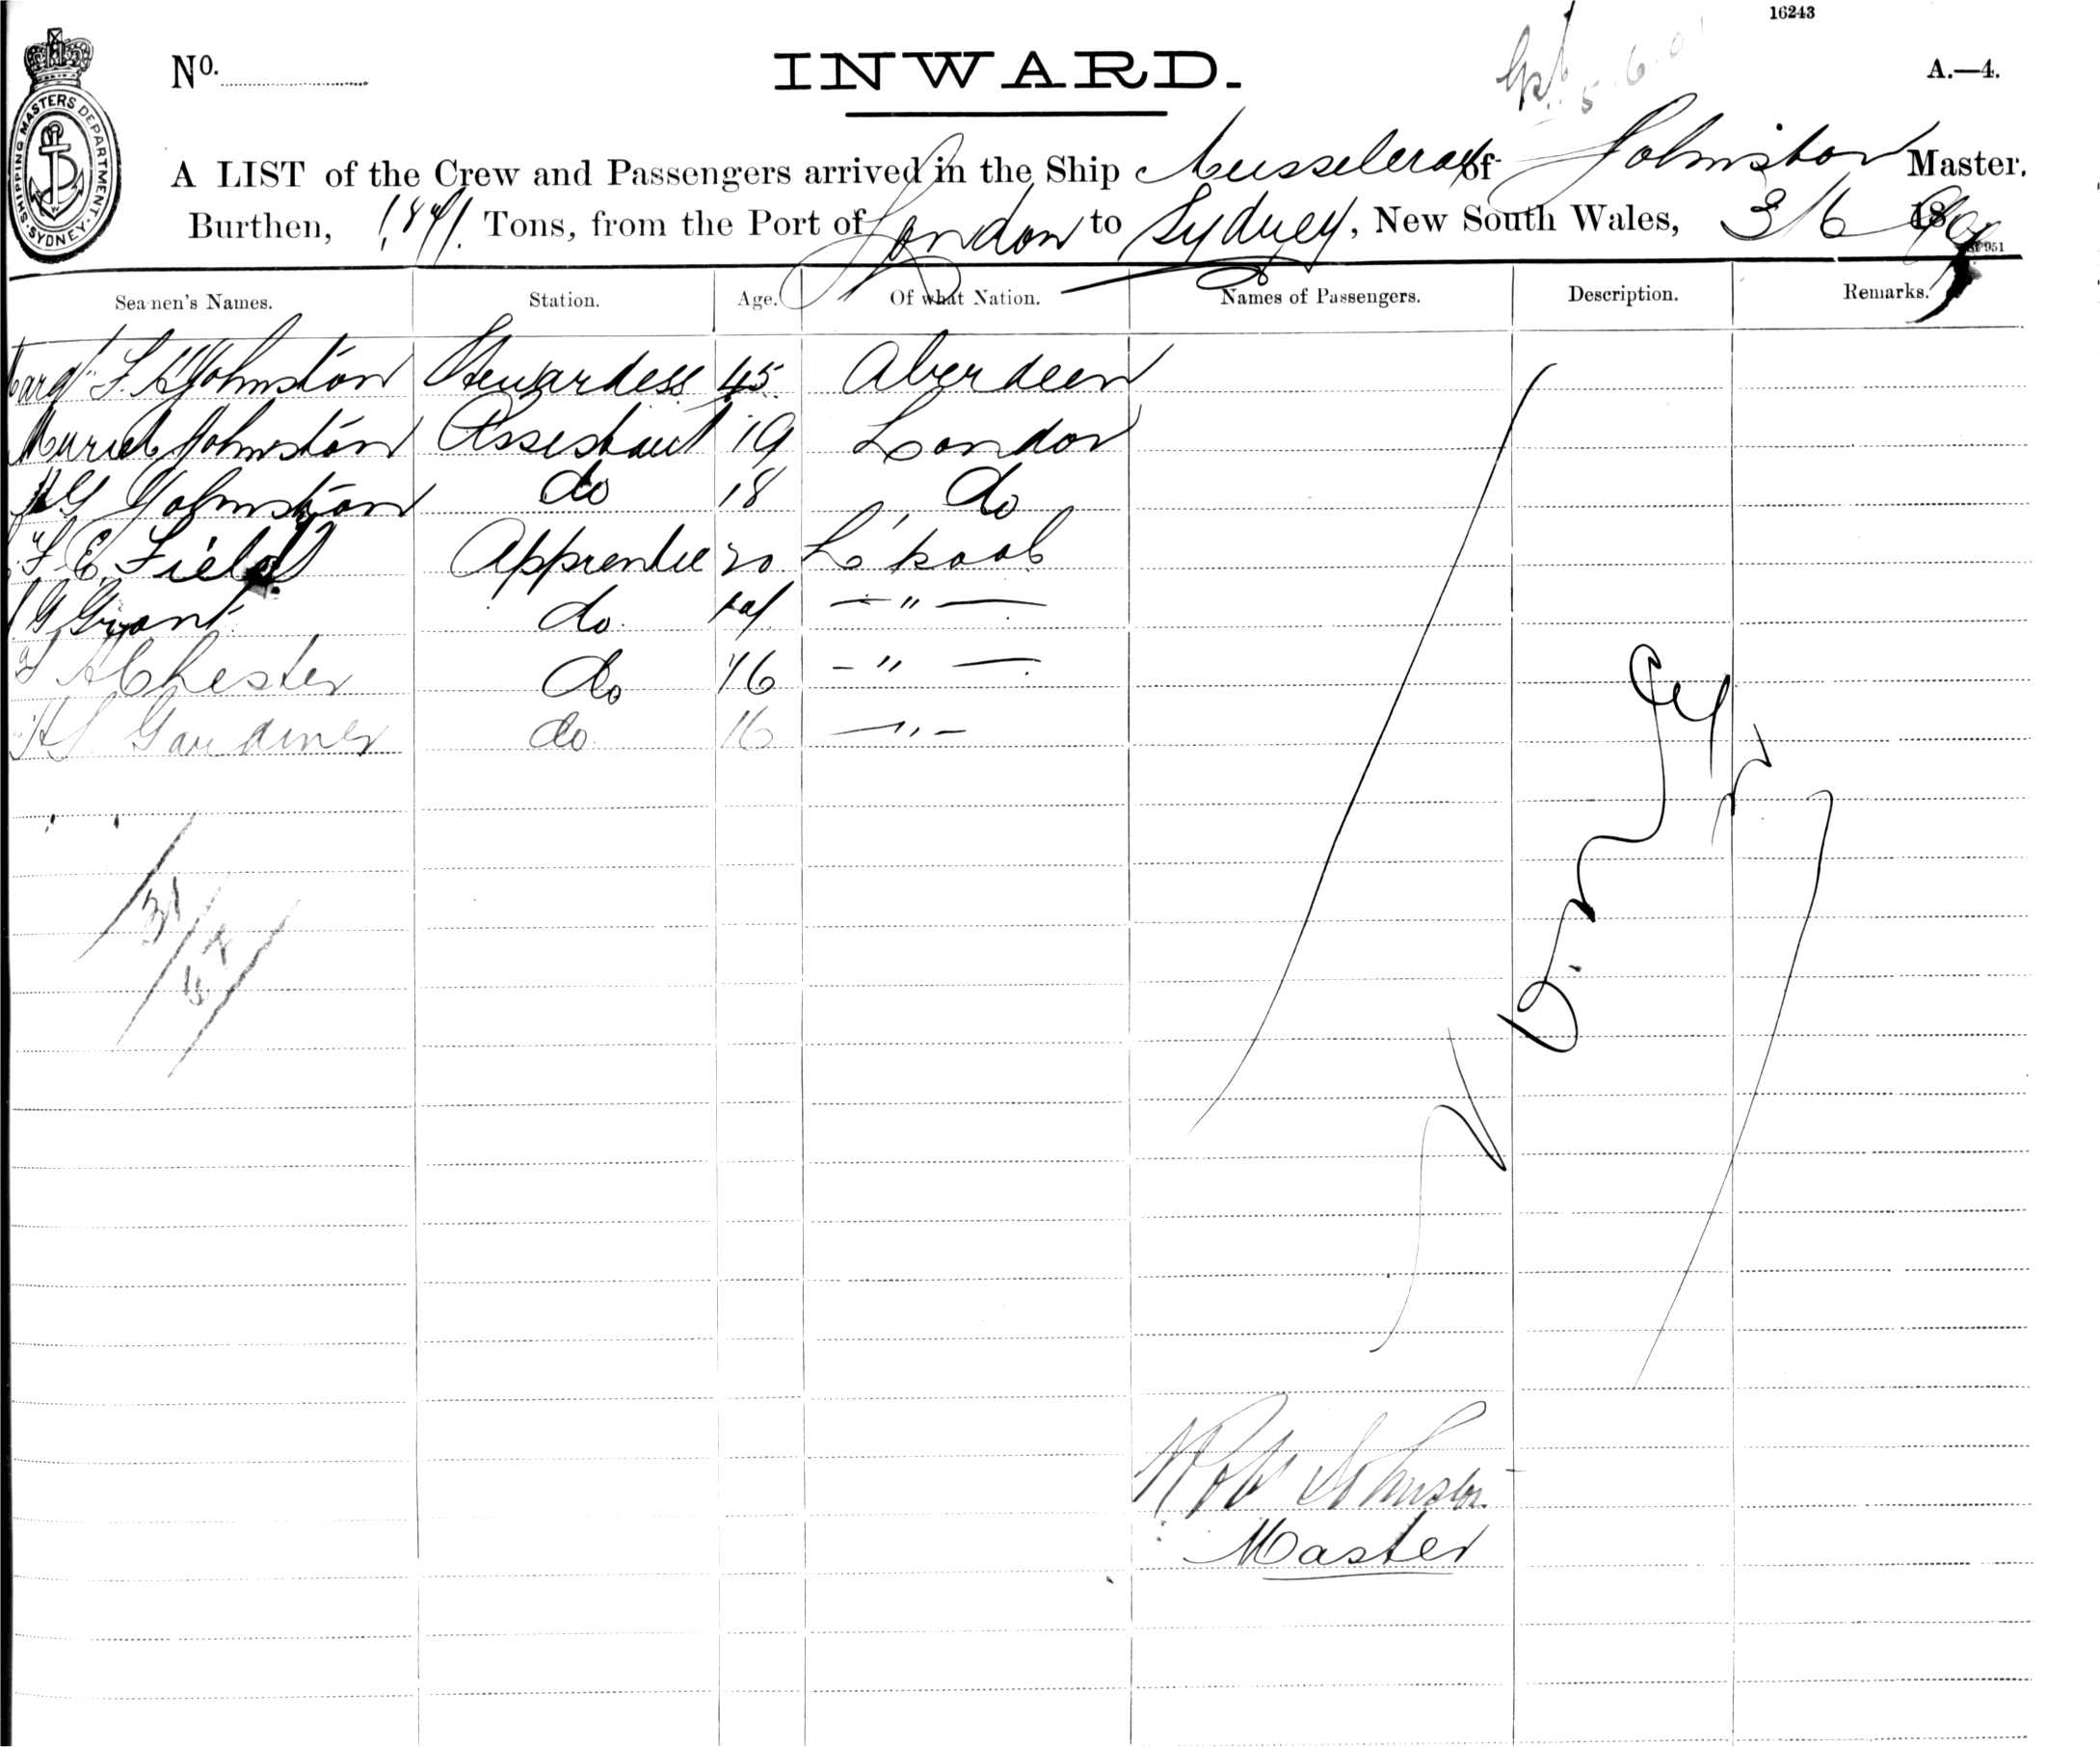 16243
No.
INWARD.
A.—4.
SHIPPING MASTERS DEPARTMENT SYDNEY
A LIST of the Crew and Passengers arrived in the Ship Musselcrag of Johnston Master.
Burthen, Tons, from the Port of London to Sydney, New South Wales, 3/6 18
Seamen's Names. Station. Age. Of what Nation. Names of Passengers. Description. Remarks.
Johnston Stewardess 45 Aberdeen
Muriel Johnston Assistant 19 London
G Johnston do 18 do
E. Field Apprentice 20 L'pool
G Grant do — " —
Chester do 16 — " —
Gardiner do 16 — " —
Robt Johnston
Master